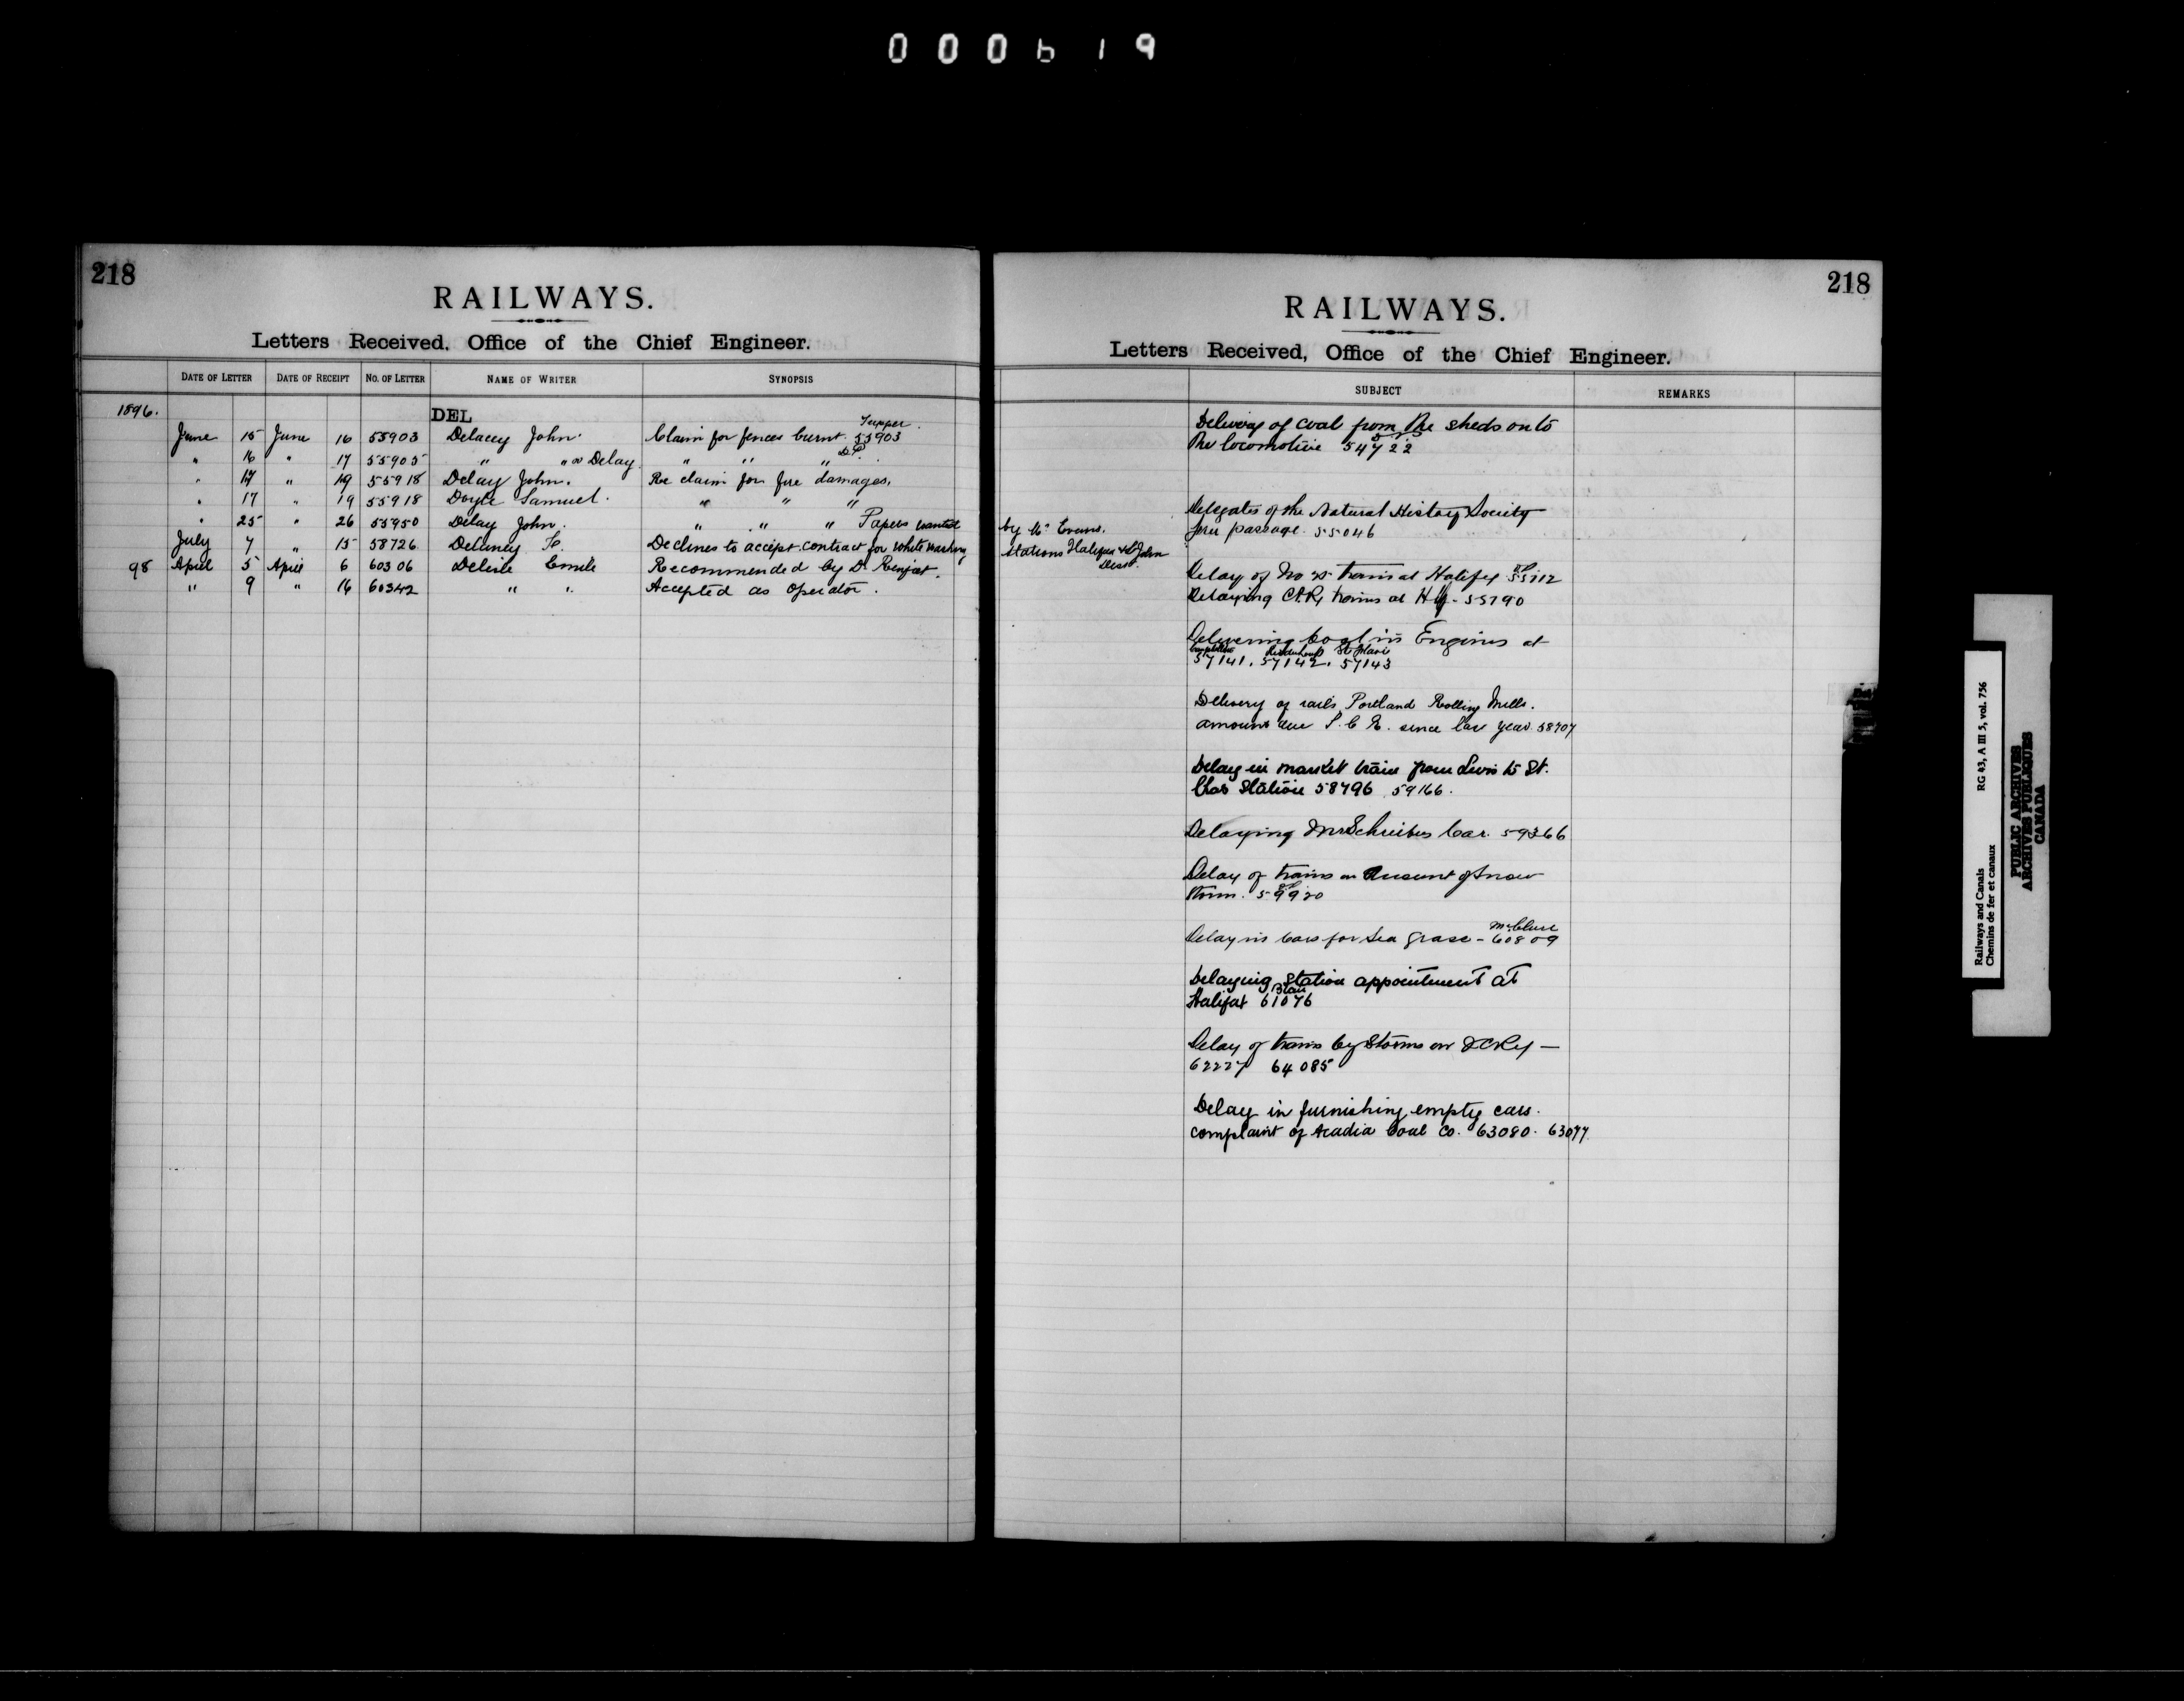 000619
218
RAILWAYS.
Letters Received, Office of the Chief Engineer.
DATE OF LETTER DATE OF RECEIPT NO. OF LETTER NAME OF WRITER SYNOPSIS
1896. DEL
Tupper
June 15 June 16 55903 Delacey John. Claim for fences burnt. 55903
" 16 " 17 55905 " " or Delay " " "
" 17 " 19 55918 Delay John. Re claim for fire damages.
" 17 " 19 55918 Doyle Samuel. " " "
" 25 " 26 55950 Delay John. " " " Papers wanted
July 7 " 15 58726 Delaney Declines to accept contract for white washing
98 April 5 April 6 60306 Delisle Emile Recommended by Dr
" 9 " 16 60342 " " Accepted as Operator.
218
RAILWAYS.
Letters Received, Office of the Chief Engineer.
SUBJECT REMARKS
Delivery of coal from the sheds onto
the locomotive 54722
Delegates of the Natural History Society
by Mr Evans. free passage. 55046
stations Halifax & St John
Dist.
Delay of No trains at Halifax 55112
Delaying C.P.Ry trains at 55790
Delivering Coal in Engines at
Campbellton Ste Flavie
57141. 57142. 57143
Delivery of rails, Portland Rolling Mills.
amount due I.C.R. since last year 58707
Delay in market train from Levis to St.
Chas Station 58796 59166.
Delaying Mr Schreibers Car. 59366
Delay of trains on account of snow
storm. 59920
McClure
Delay in Cars for Sea Grass - 60809
Delaying station appointment at
Blair
Halifax 61076
Delay of trains by Storms on ICRy —
62227 64085
Delay in furnishing empty cars.
complaint of Acadia Coal Co. 63080. 63077
Railways and Canals RG 43, A III 5, vol. 756
Chemins de fer et canaux
PUBLIC ARCHIVES
ARCHIVES PUBLIQUES
CANADA